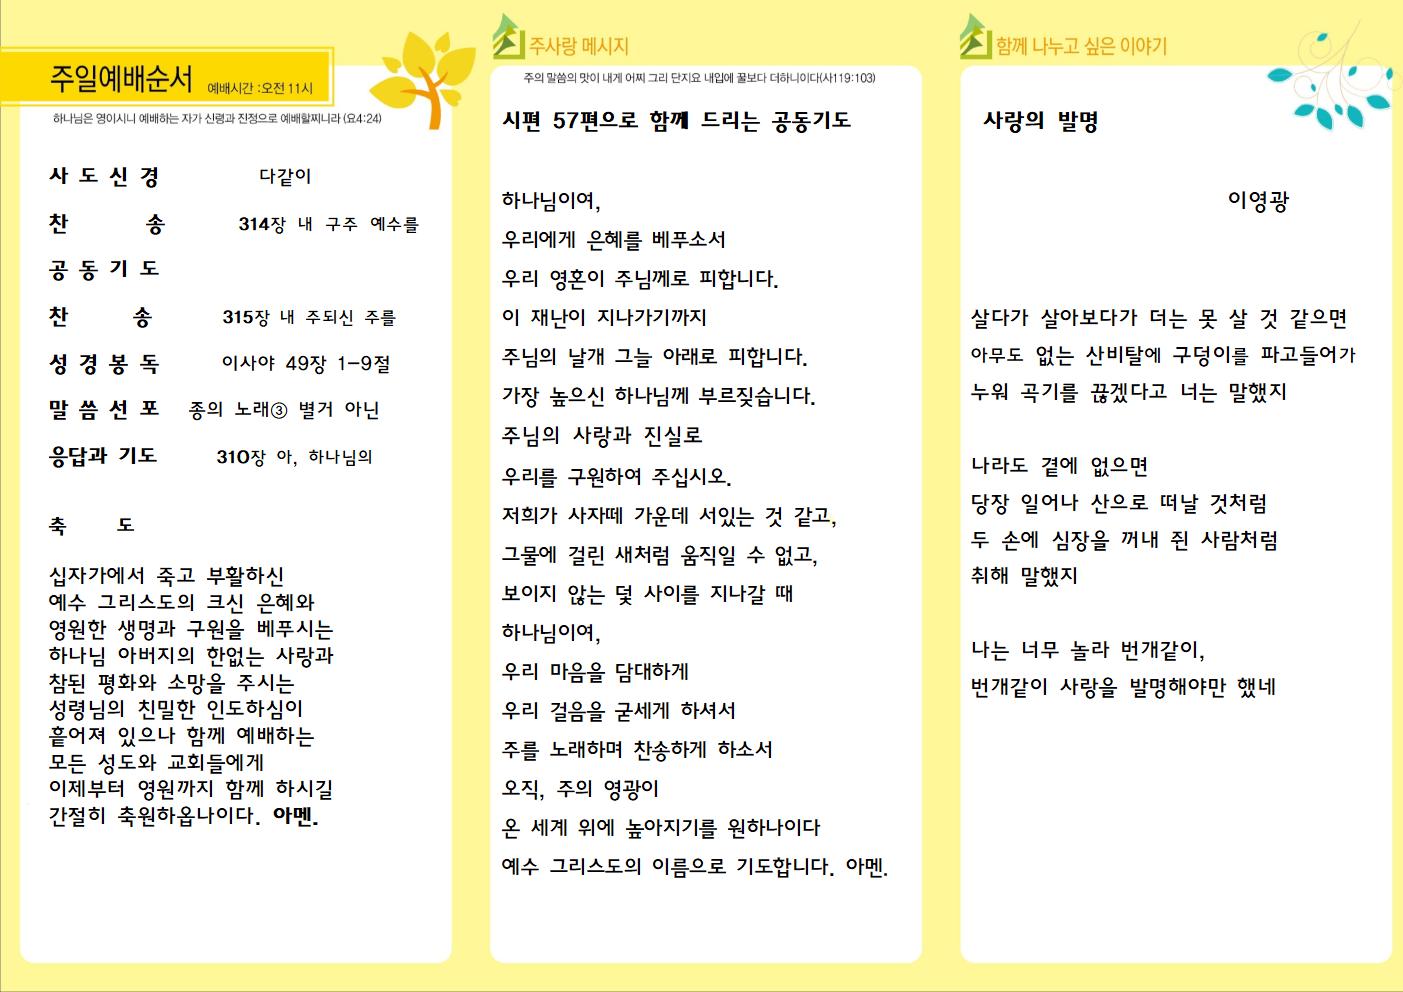 주일예배순서 예배시간 :오전 11시
하나님은 영이시니 예배하는 자가 신령과 진정으로 예배할찌니라 (요4:24)
사 도 신 경 다같이
찬 송 314장 내 구주 예수를
공 동 기 도
찬 송 315장 내 주되신 주를
성 경 봉 독 이사야 49장 1-9절
말 씀 선 포 종의 노래③ 별거 아닌
응답과 기도 310장 아, 하나님의
축 도
십자가에서 죽고 부활하신
예수 그리스도의 크신 은혜와
영원한 생명과 구원을 베푸시는
하나님 아버지의 한없는 사랑과
참된 평화와 소망을 주시는
성령님의 친밀한 인도하심이
흩어져 있으나 함께 예배하는
모든 성도와 교회들에게
이제부터 영원까지 함께 하시길
간절히 축원하옵나이다. 아멘.
주사랑 메시지
주의 말씀의 맛이 내게 어찌 그리 단지요 내입에 꿀보다 더하니이다(사119:103)
시편 57편으로 함께 드리는 공동기도
하나님이여,
우리에게 은혜를 베푸소서
우리 영혼이 주님께로 피합니다.
이 재난이 지나가기까지
주님의 날개 그늘 아래로 피합니다.
가장 높으신 하나님께 부르짖습니다.
주님의 사랑과 진실로
우리를 구원하여 주십시오.
저희가 사자떼 가운데 서있는 것 같고,
그물에 걸린 새처럼 움직일 수 없고,
보이지 않는 덫 사이를 지나갈 때
하나님이여,
우리 마음을 담대하게
우리 걸음을 굳세게 하셔서
주를 노래하며 찬송하게 하소서
오직, 주의 영광이
온 세계 위에 높아지기를 원하나이다
예수 그리스도의 이름으로 기도합니다. 아멘.
함께 나누고 싶은 이야기
사랑의 발명
이영광
살다가 살아보다가 더는 못 살 것 같으면
아무도 없는 산비탈에 구덩이를 파고들어가
누워 곡기를 끊겠다고 너는 말했지
나라도 곁에 없으면
당장 일어나 산으로 떠날 것처럼
두 손에 심장을 꺼내 쥔 사람처럼
취해 말했지
나는 너무 놀라 번개같이,
번개같이 사랑을 발명해야만 했네